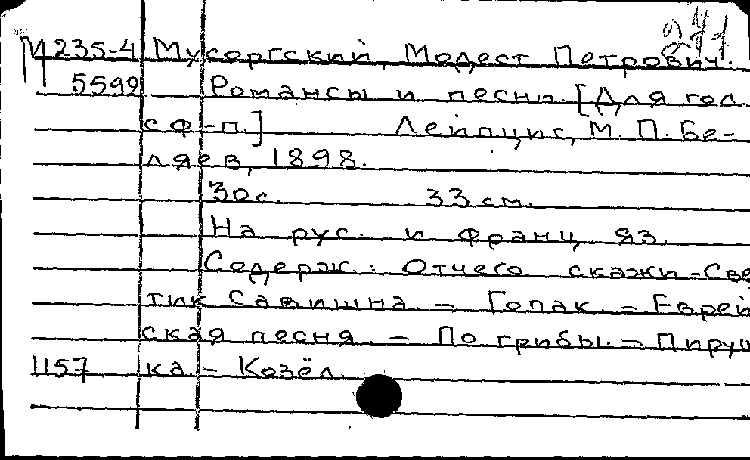 241
М 235-4 Мусоргский, Модест Петрович.
5599 Романсы и песни. [Для гол.
с ф-п.] Лейпциг, М. П. Бе-
ляев, 1898.
30 с. 33 см.
На рус. и франц. яз.
Содерж.: Отчего скажи - Све
тик Савишна - Гопак - Еврей
ская песня. - По грибы. - Пируш
1157 ка - Козёл.